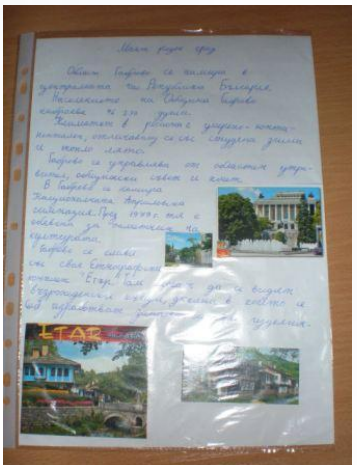 Моят роден град
Област Габрово се намира в
централната на Република България
Населението на Община Габрово
наброява
Климатът в района е умерено-конти-
нентален, отличаващ се със студена зима
и топло лято.
Габрово се управлява от областен упра-
вител, общински съвет и кмет.
В Габрово се намира
Националната Априловска
гимназия. През тя е
обявена за на
културата.
Габрово се слави
със своя Етнографски
комплекс "Етър". Там може да се видят
възрожденски къщи, в които и
до
ETAR